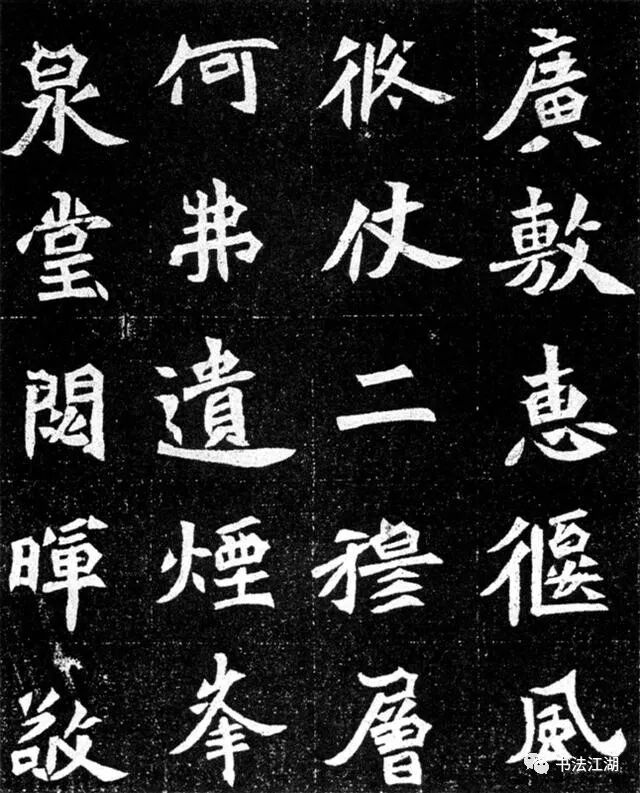 廣敷恵偃風
攸仗二穆層
何弗遺煙峯
泉堂閟暉敬
书法江湖